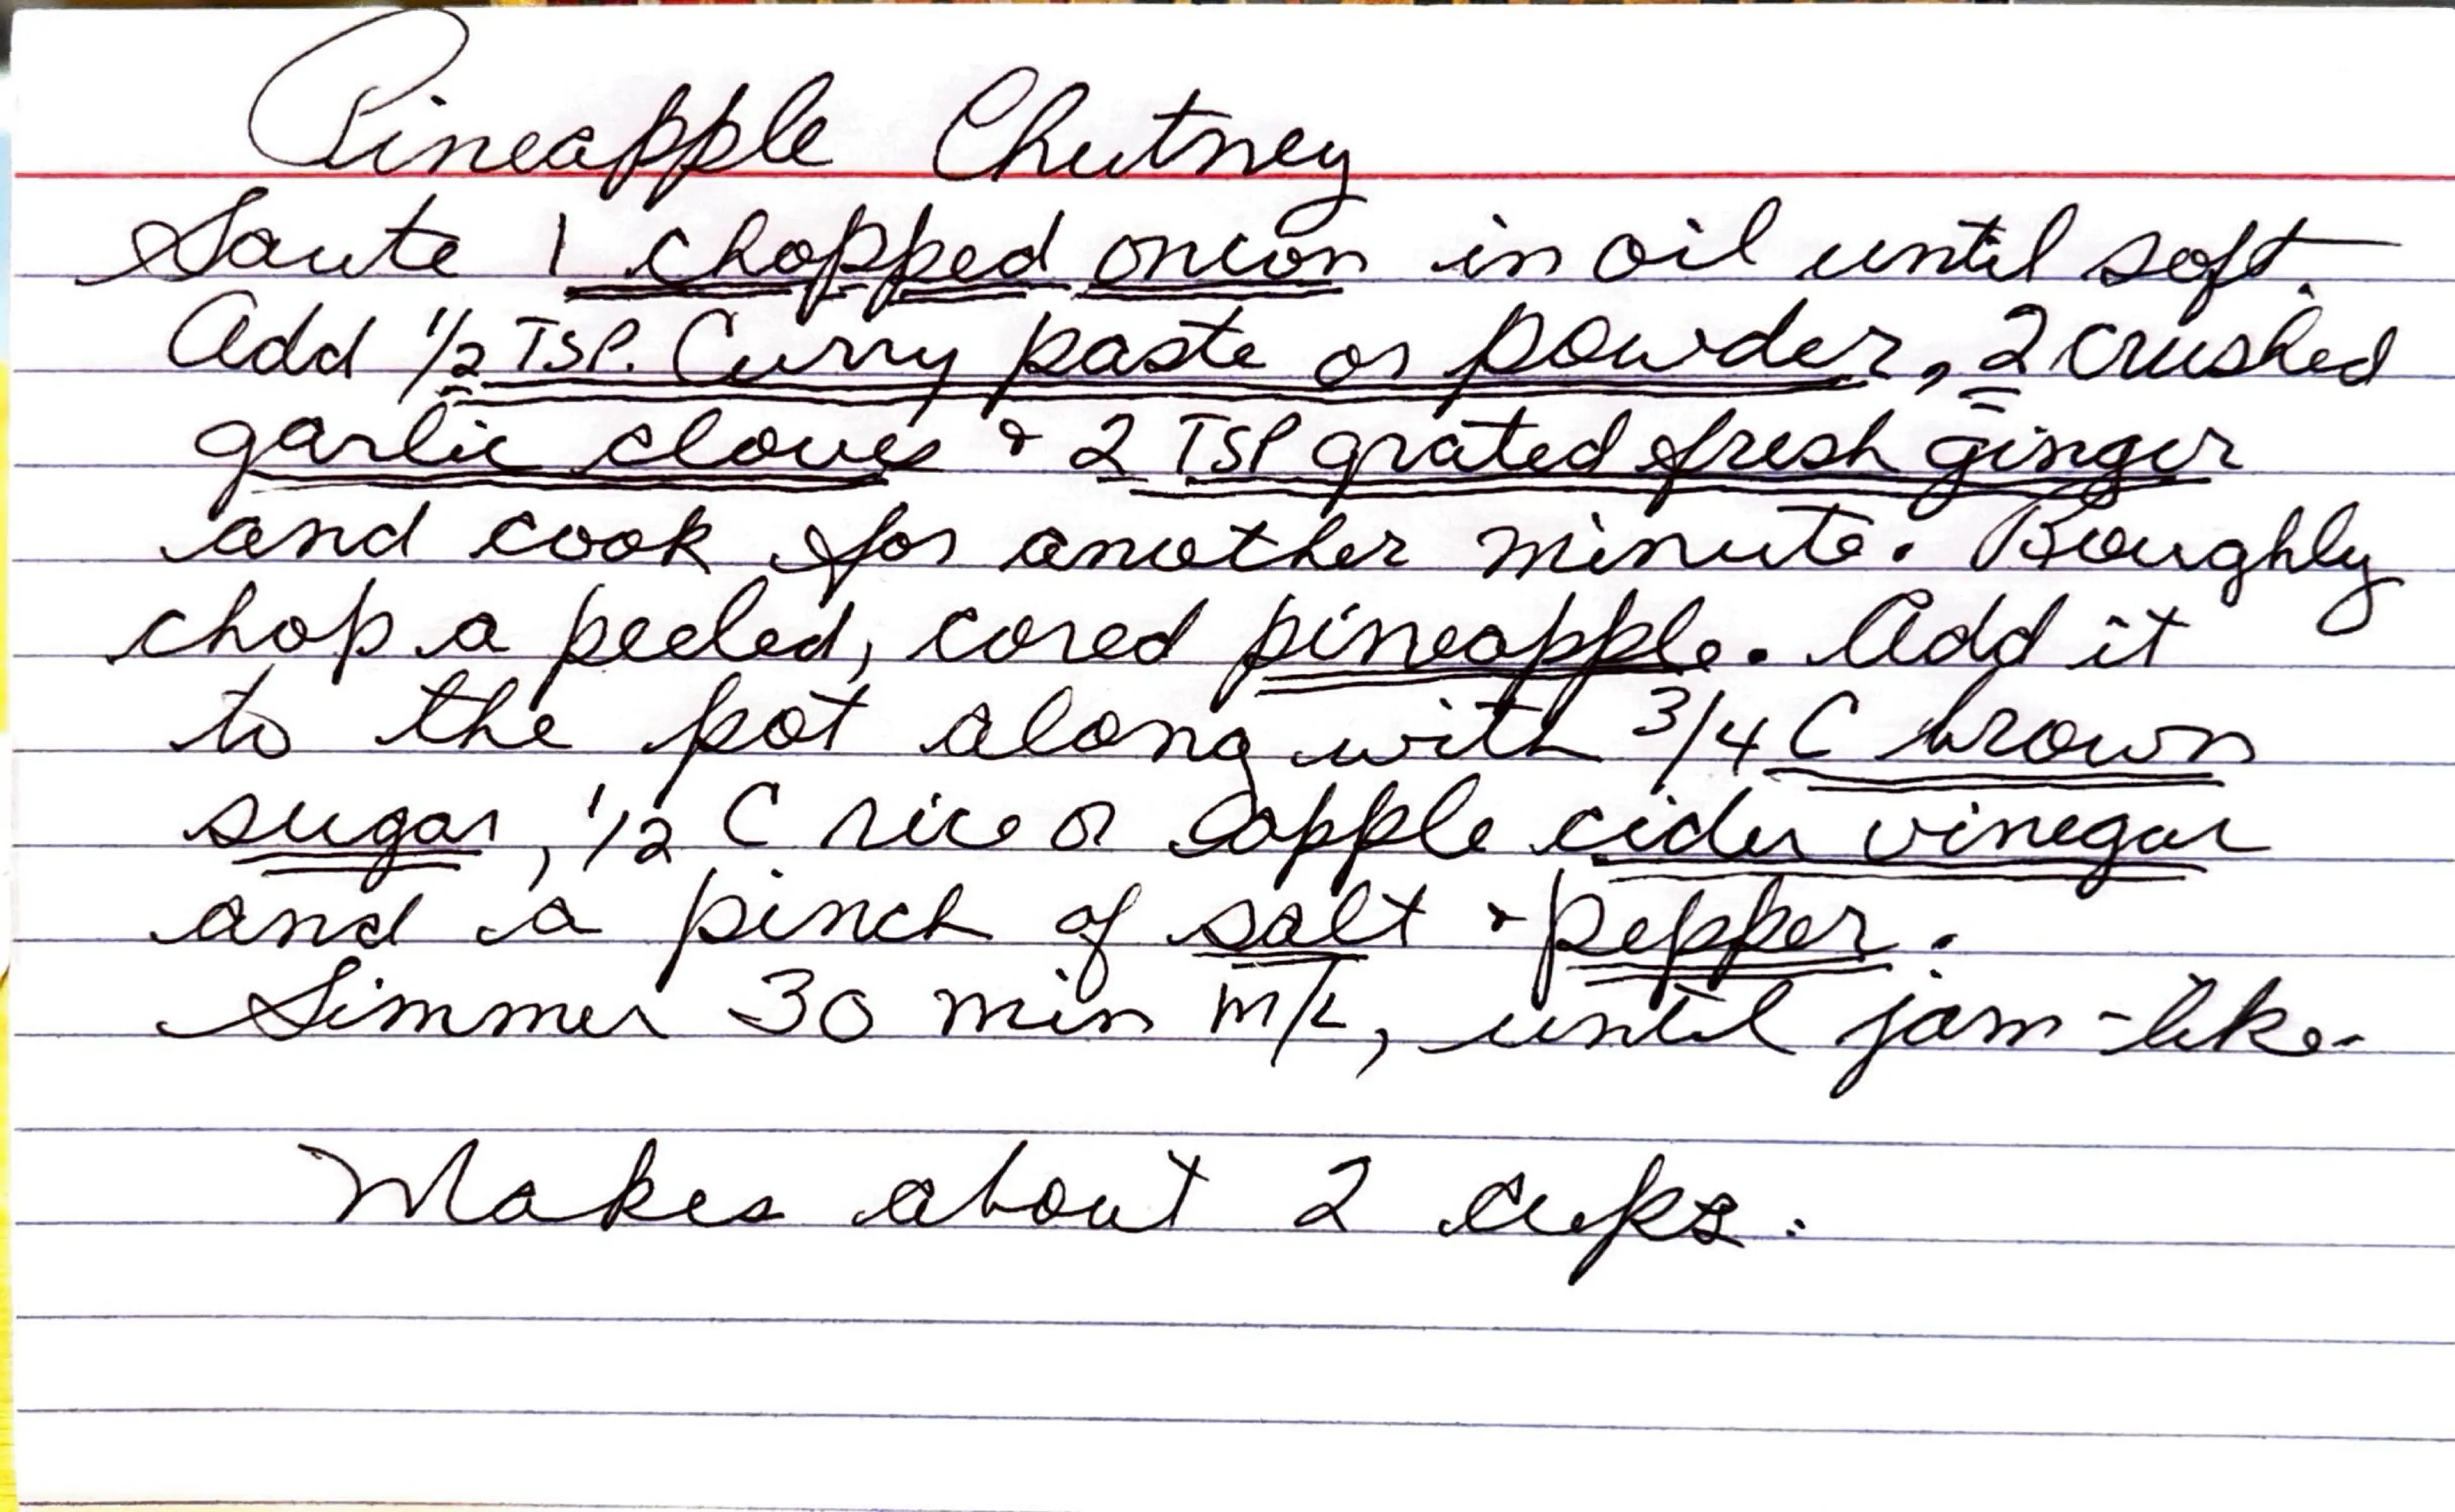 Pineapple Chutney
Saute 1 chopped onion in oil until soft.
Add 1/2 TSP. Curry paste or powder, 2 crushed
garlic cloves & 2 TSP grated fresh ginger
and cook for another minute. Roughly
chop a peeled, cored pineapple. Add it
to the pot along with 3/4 C brown
sugar, 1/2 C rice or apple cider vinegar
and a pinch of salt & pepper.
Simmer 30 min m/L, until jam-like.
Makes about 2 cups.